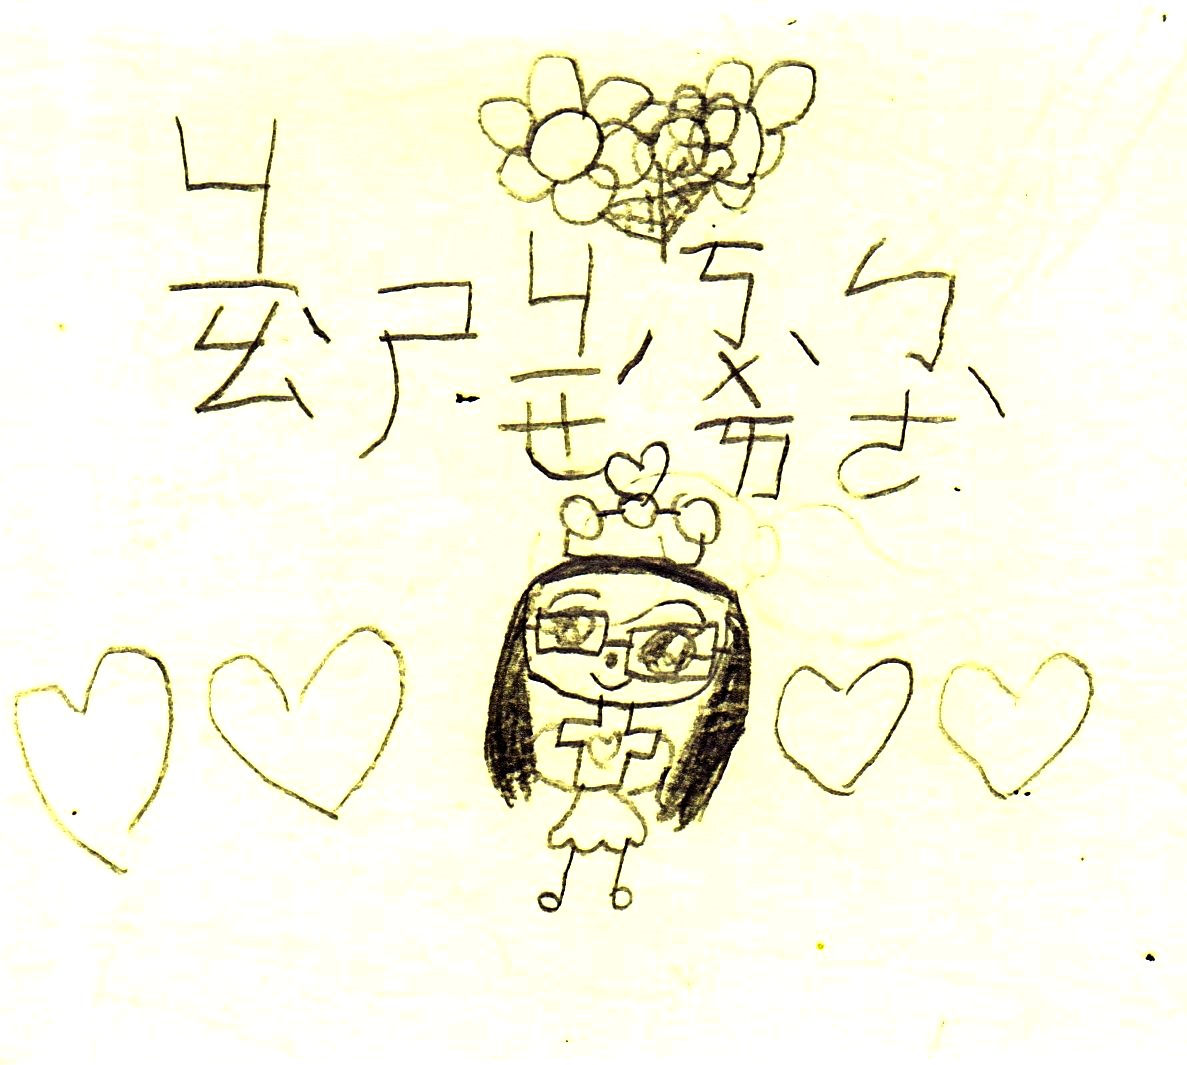 ㄐㄧㄠˋ ㄕ ㄐㄧㄝˊ ㄎㄨㄞˋ ㄌㄜˋ